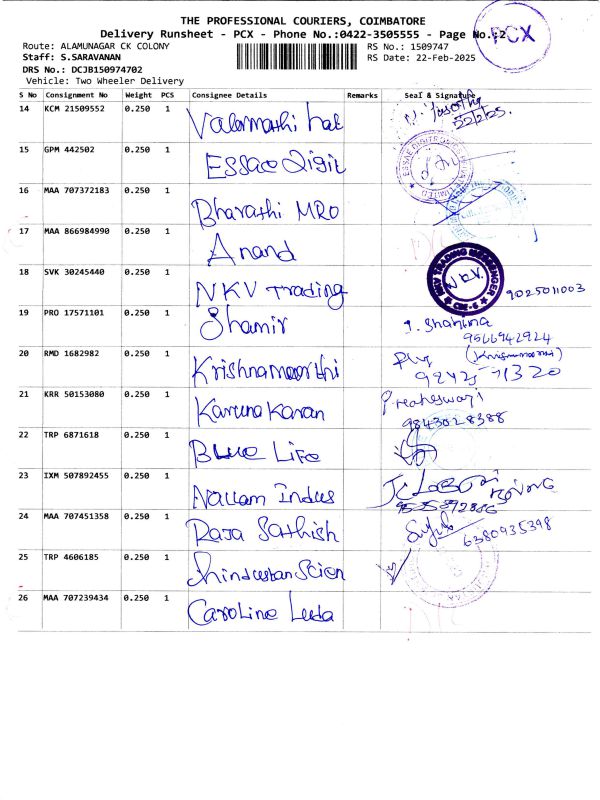 THE PROFESSIONAL COURIERS, COIMBATORE
Delivery Runsheet - PCX - Phone No.:0422-3505555 - Page No.:2
PCX
Route: ALAMUNAGAR CK COLONY
RS No.: 1509747
Staff: S.SARAVANAN
RS Date: 22-Feb-2025
DRS No.: DCJB150974702
Vehicle: Two Wheeler Delivery
S No Consignment No Weight PCS Consignee Details Remarks Seal & Signature
14 KCM 21509552 0.250 1 Valarmathi
15 GPM 442502 0.250 1 Essae Digit
16 MAA 707372183 0.250 1 Bharathi MRO
17 MAA 866984990 0.250 1 Anand
18 SVK 30245440 0.250 1 NKV Trading N.K.V. 9025011003
19 PRO 17571101 0.250 1 Shamir
9566942924
20 RMD 1682982 0.250 1 Krishnamoorthi
92425 71320
21 KRR 50153080 0.250 1 Karunakaran
9843028388
22 TRP 6871618 0.250 1 Blue Life
23 IXM 507892455 0.250 1 Nallam Indus
24 MAA 707451358 0.250 1 Raja Sathish 6380935398
25 TRP 4606185 0.250 1 Hindustan Scien
26 MAA 707239434 0.250 1 Caroline